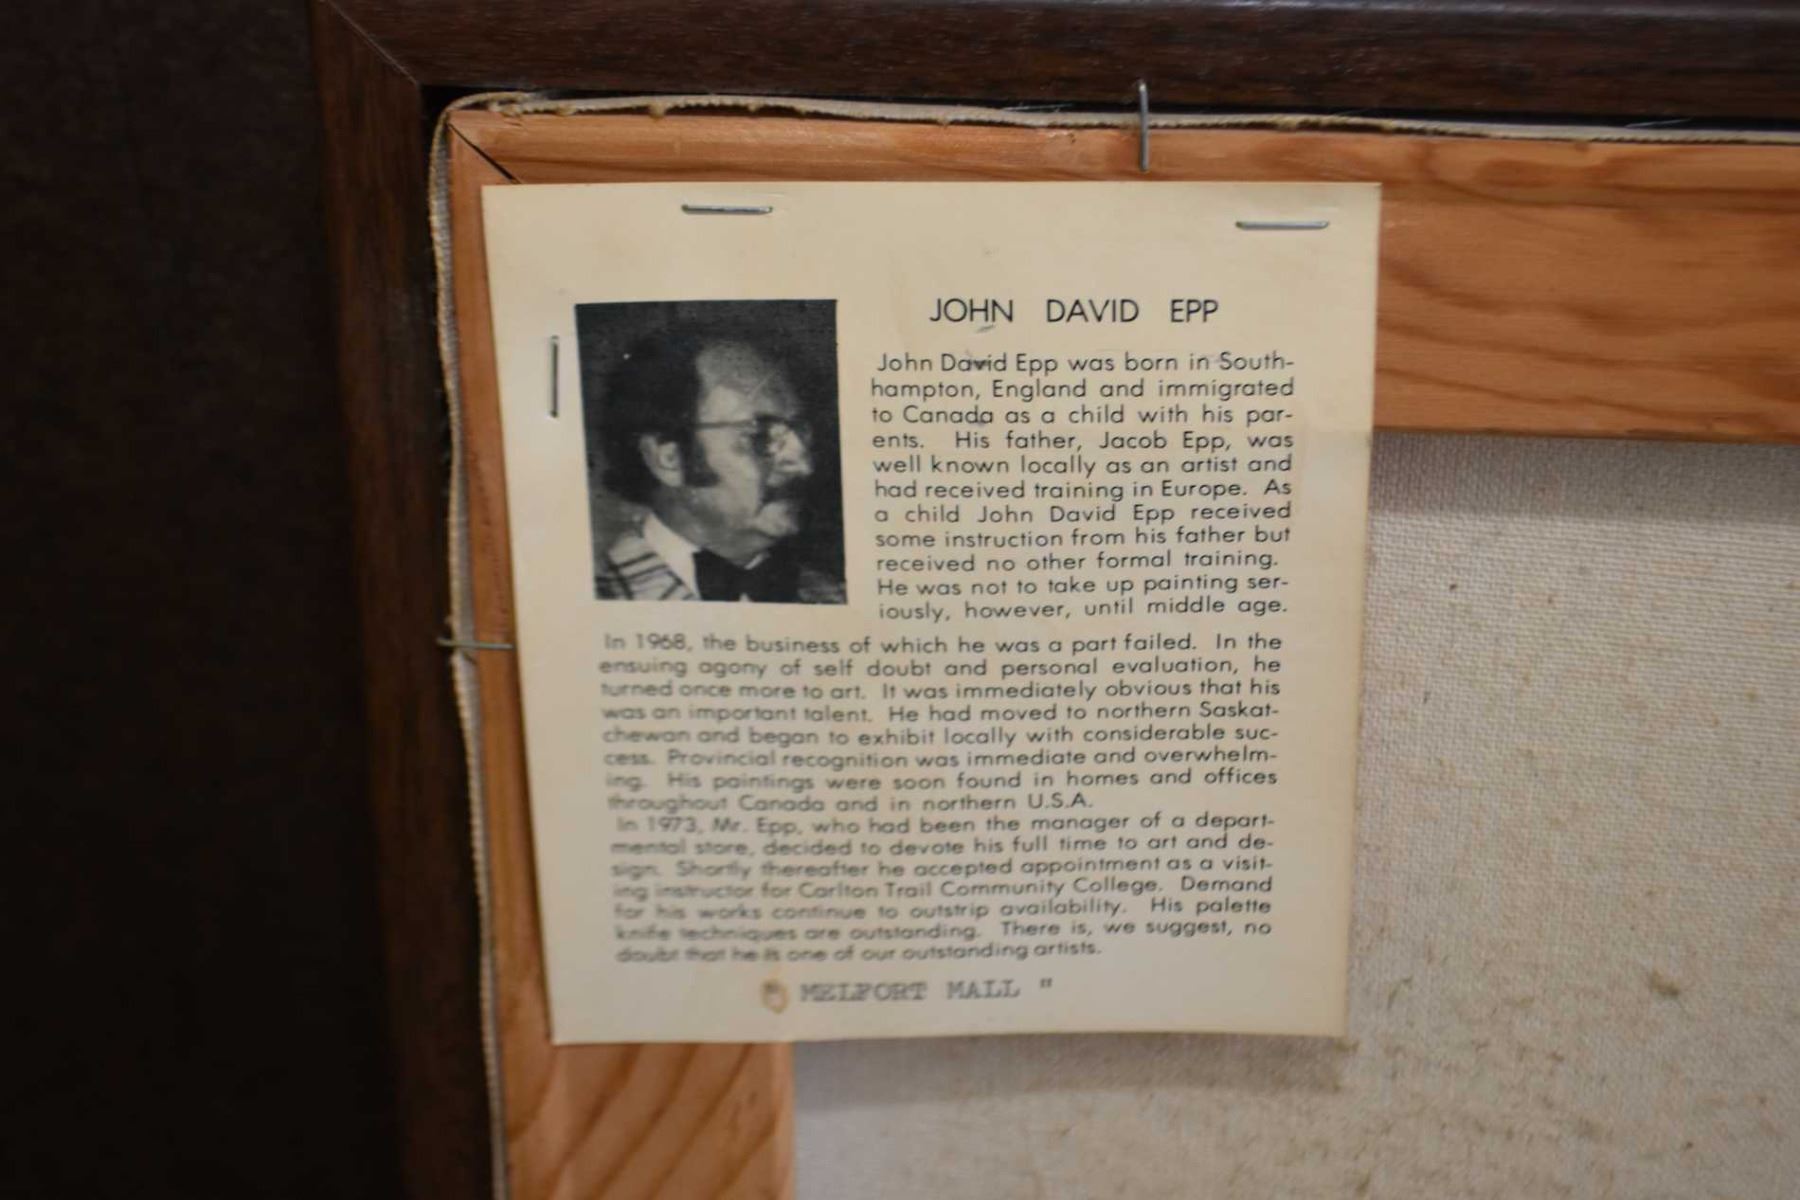 JOHN DAVID EPP
John David Epp was born in South-
hampton, England and immigrated
to Canada as a child with his par-
ents. His father, Jacob Epp, was
well known locally as an artist and
had received training in Europe. As
a child John David Epp received
some instruction from his father but
received no other formal training.
He was not to take up painting ser-
iously, however, until middle age.
In 1968, the business of which he was a part failed. In the
ensuing agony of self doubt and personal evaluation, he
turned once more to art. It was immediately obvious that his
was an important talent. He had moved to northern Saskat-
chewan and began to exhibit locally with considerable suc-
cess. Provincial recognition was immediate and overwhelm-
ing. His paintings were soon found in homes and offices
throughout Canada and in northern U.S.A.
In 1973, Mr. Epp, who had been the manager of a depart-
mental store, decided to devote his full time to art and de-
sign. Shortly thereafter he accepted appointment as a visit-
ing instructor for Carlton Trail Community College. Demand
for his works continue to outstrip availability. His palette
knife techniques are outstanding. There is, we suggest, no
doubt that he is one of our outstanding artists.
" MELFORT MALL "